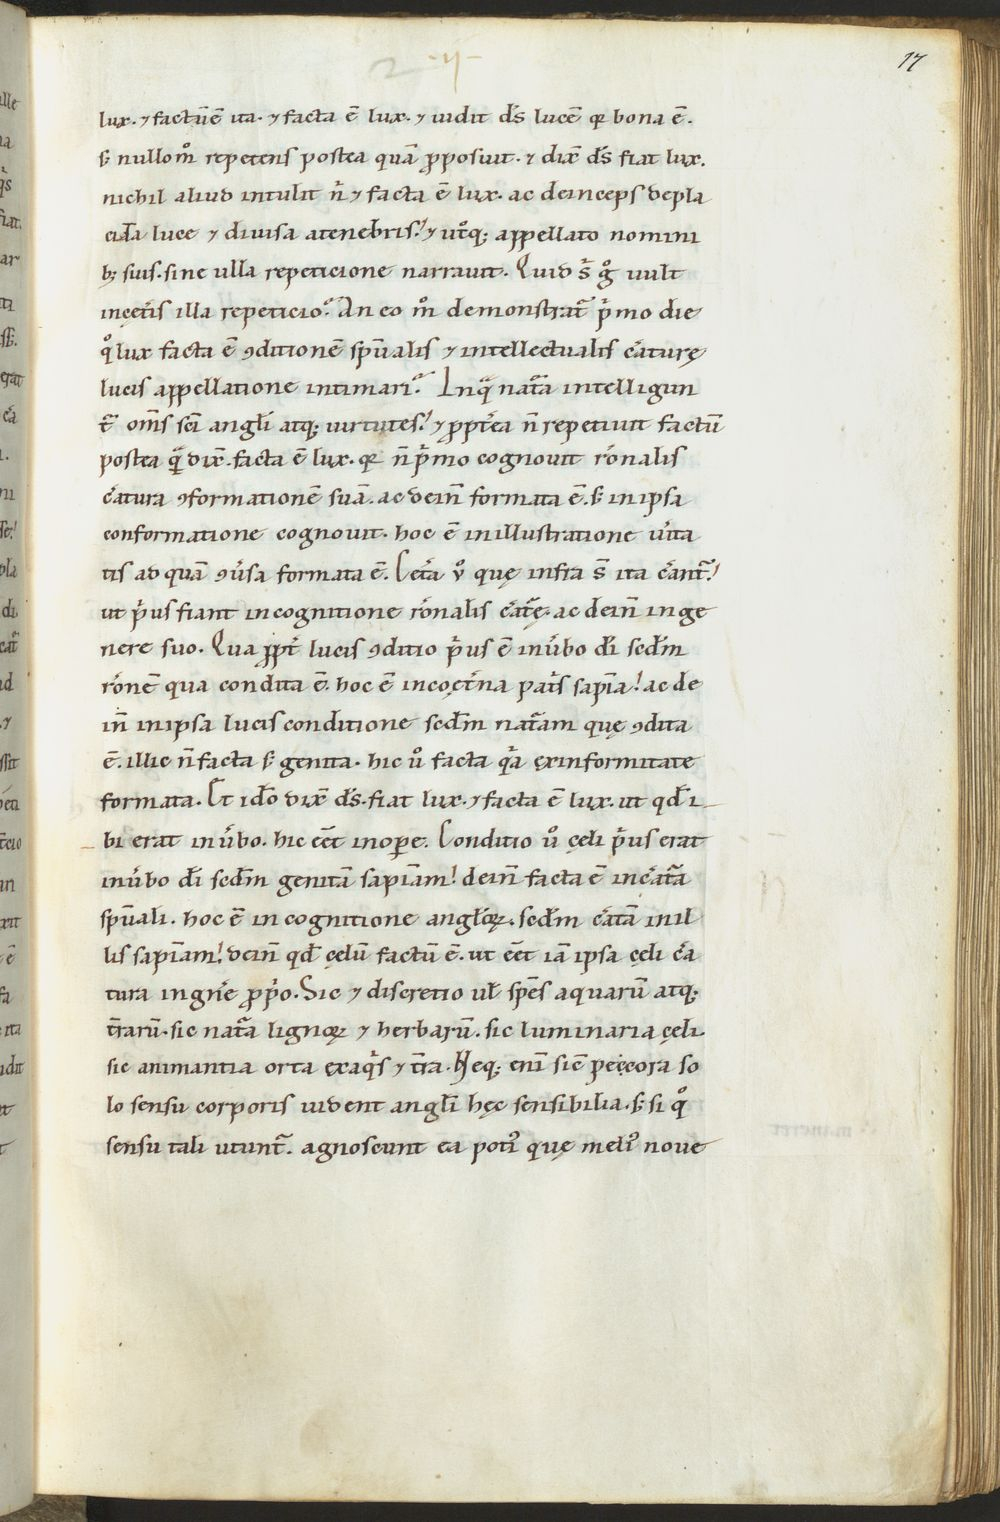 17
lux. ⁊ factũ ẽ ita. ⁊ facta ẽ lux. ⁊ uidit dr̃s lucẽ qꝛ bona ẽ.
sꝫ nullom̊ repetens postea quã ꝓposuit. ⁊ dix̃ ds̃ fiat lux.
nichil aliud intulit ñ ⁊ facta ẽ lux. ac deinceps depla
cida luce ⁊ diuisa atenebris! ⁊ utq̊; appellato nomini
bꝫ suis. sine ulla repeticione narrauit. Quid s̃ g̊ uult
incęt̃is illa repeticio? An eo m̊ demonstrat̃ pͥmo die
q̊ lux facta ẽ ꝯditionẽ spũalis ⁊ intellectualis c̃aturę
lucis appellatione intimari? Inqͣ nat̃a intelligun
t̃ om̃s sc̃i angl̃i atq; uirtutes! ⁊ ꝓpt̃ea ñ repetiuit factũ
postea qͣ dix̃. facta ẽ lux. qꝛ ñ pͥmo cognouit rõnalis
c̃atura ꝯformationẽ suã. ac dein̄ formata ẽ. sꝫ inipsa
conformatione cognouit. hoc ẽ inillustratione uͥita
tis ad quã ꝯũsa formata ẽ. Cet̃a ů quę infra s̃ ita c̃ant̃!
ut pͥus fiant incognitione rõnalis c̃at̃ę. ac dein̄ inge
nere suo. Qua ꝓpt̃ lucis ꝯditio pͥus ẽ inũbo dĩ scd̃m
rõnẽ qua condita ẽ. hoc ẽ incoęt̃na pat̃s sapĩa! ac de
in̄ inipsa lucis conditione scd̃m nat̃am quę ꝯdita
ẽ. illic ñ facta sꝫ genita. hic ů facta qͣa exinformitate
formata. Et id̃o dix̃ ds̃. fiat lux. ⁊ facta ẽ lux. ut qd̃ i
bi erat inũbo. hic eẽt inoꝑe. Conditio ů cęli pͥus erat
inũbo dĩ scd̃m genitã sapĩam! dein̄ facta ẽ inc̃at̃a
spũali. hoc ẽ in cognitione angl̃oꝝ. scd̃m c̃atã inil
lis sapĩam! dein̄ qd̃ cęlũ factũ ẽ. ut eẽt iã ipsa cęli c̃a
tura ingñe ꝓpͥo. Sic ⁊ discretio ul̃ spẽs aquarũ atq;
t̃rarũ. sic nat̃a lignoꝝ ⁊ herbarũ. sic luminaria cęli.
sic animantia orta exaqͥs ⁊ t̃ra. Neq; enĩ sic̃ pecora so
lo sensu corporis uident angl̃i hęc sensibilia. sꝫ si q̊
sensu tali utunt̃. agnoscunt ea potiꝰ quę meliꝰ noue